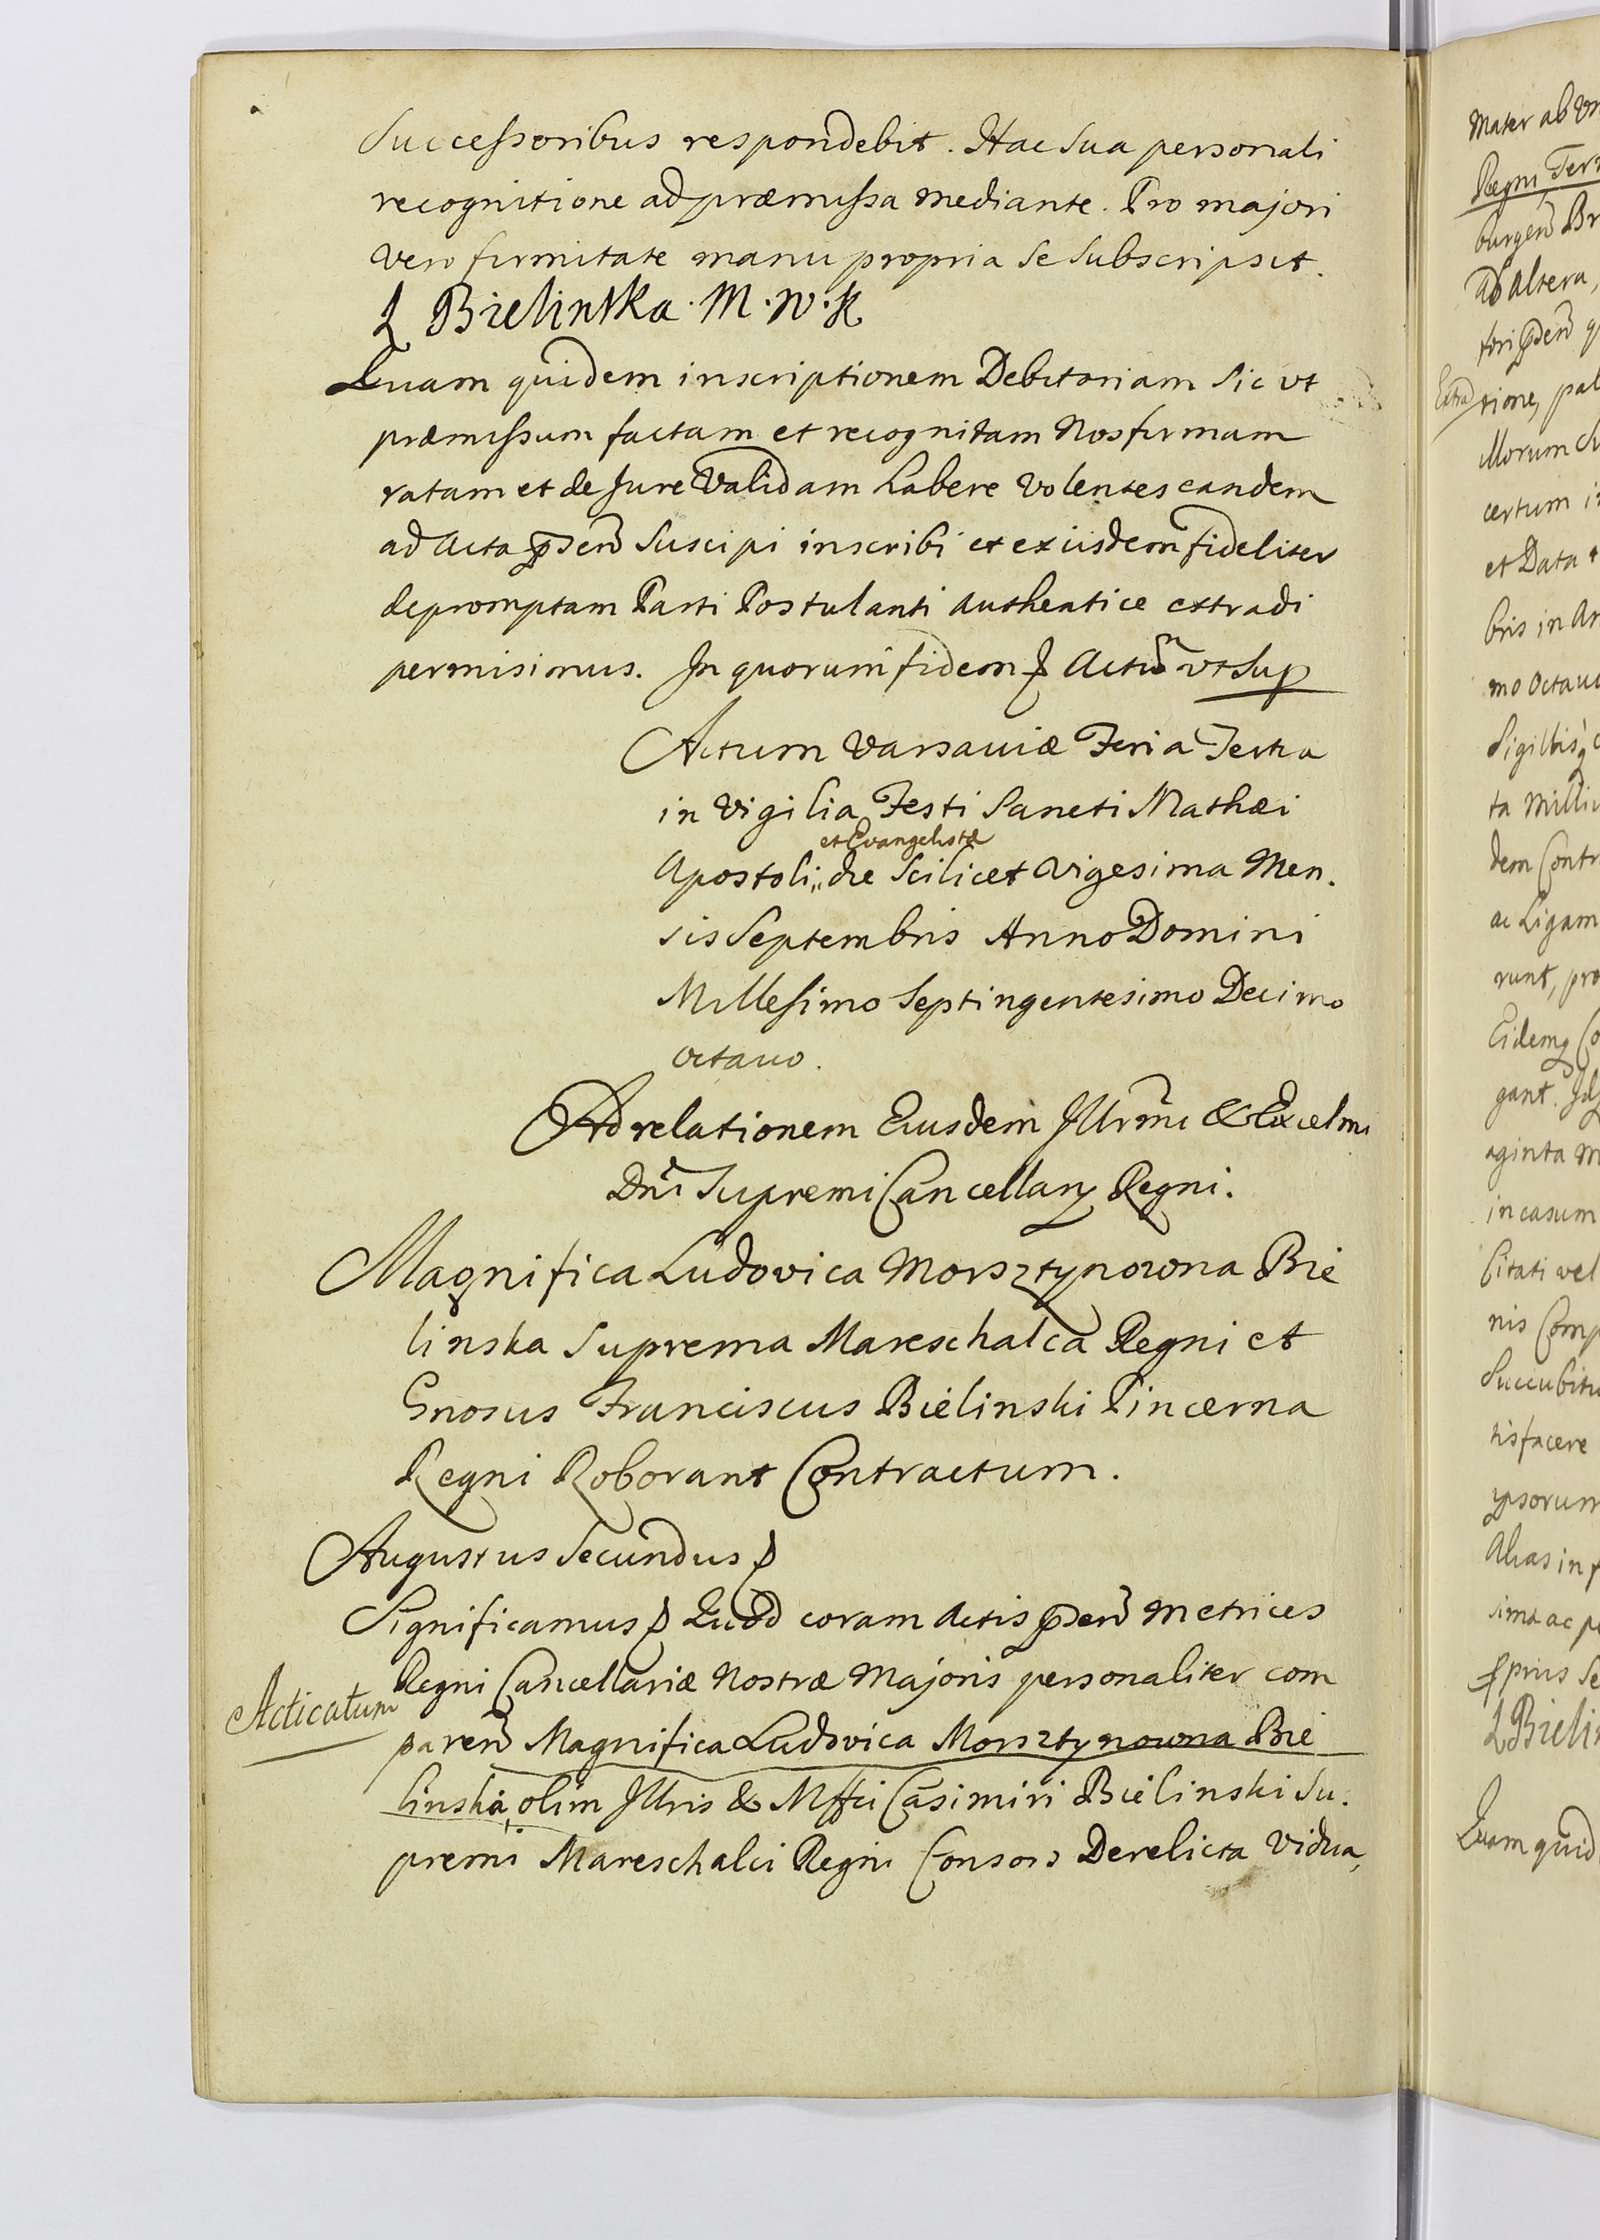 Successoribus respondebit. Hac Sua personali
recognitione ad præmissa mediante. Pro majori
vero firmitate manu propria Se Subscripsit.
L Bielinska. M. W. K
Quam quidem inscriptionem Debitoriam Sic vt
præmissum factam et recognitam Nos firmam
ratam et de Jure Validam habere Volentes eandem
ad Acta p̃sen̄ Suscipi inscribi et ex iisdem fideliter
depromptam Parti Postulanti Authentice extradi
permisimus. In quorum fidem ꝑ Actum vt Sup
Actum Varsaviæ Feria Tertia
in Vigilia Festi Sancti Mathæi
et Evangelistæ
Apostoli,, die Scilicet Vigesima Men.
sis Septembris Anno Domini
Millesimo Septingentesimo Decimo
Octavo.
Ad relationem Eiusdem Illrm̄i & Excelmi
Dn̄i Supremi Cancellarÿ Regni.
Magnifica Ludovica Morsztynowna Bie
linska Suprema Mareschalca Regni et
Gnosus Franciscus Bielinski Pincerna
Regni Roborant Contractum.
Augustus Secundus ꝑ
Significamus ꝑ Quod coram Actis p̃sen̄ Metrices
Regni Cancellariæ Nostræ Majoris personaliter com
Acticatum
paren̄ Magnifica Ludovica Morsztynowna Bie
linska, olim Illris & Mffci Casimiri Bielinski Su.
premi Mareschalci Regni Consors Derelicta Vidua,
Mater ab
Regni
burgen̄
ad altera,
fori p̃sen̄
Extra
tione,
illorum
certum
et Data
bris in
mo Octavo
Sigillisq
ta
dem
ac Ligam
runt,
Eidemq
gant.
aginta
in casum
Citati vel
nis Comp
Succubitu
tisfacere
ipsorum
Alias in
sima ac
prius Se
L Bieli
Quam quid